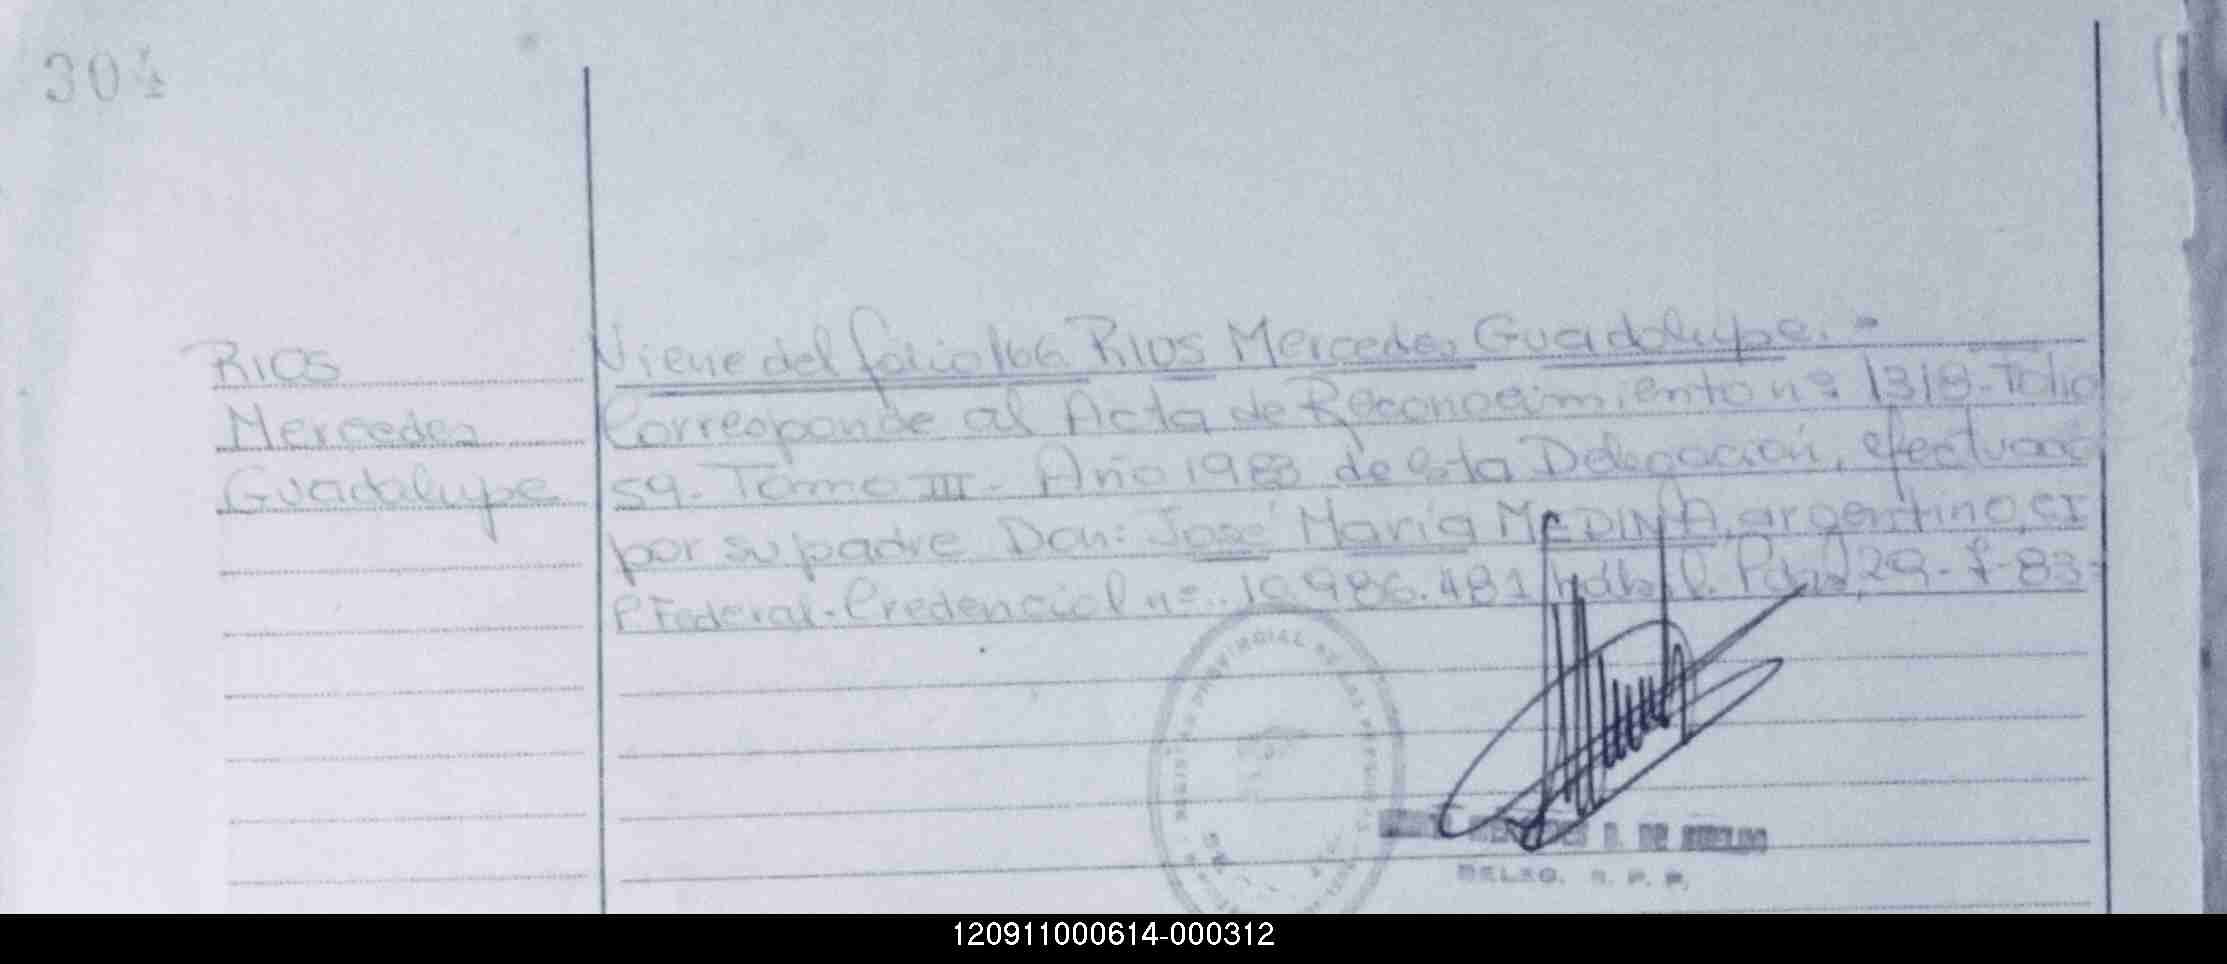 304
RIOS
Mercedes
Guadalupe
Viene del folio 166 RIOS Mercedes Guadalupe.-
Corresponde al Acta de Reconocimiento nº 1318- Folio
59- Tomo III- Año 1983 de esta Delegación, efectuado
por su padre Don: José María MEDINA, argentino, CI
P Federal- Credencial nº 10.986.481 hábil. 29-7-83-
REGISTRO PROVINCIAL DE LAS PERSONAS
DELEG. R. P. P.
120911000614-000312